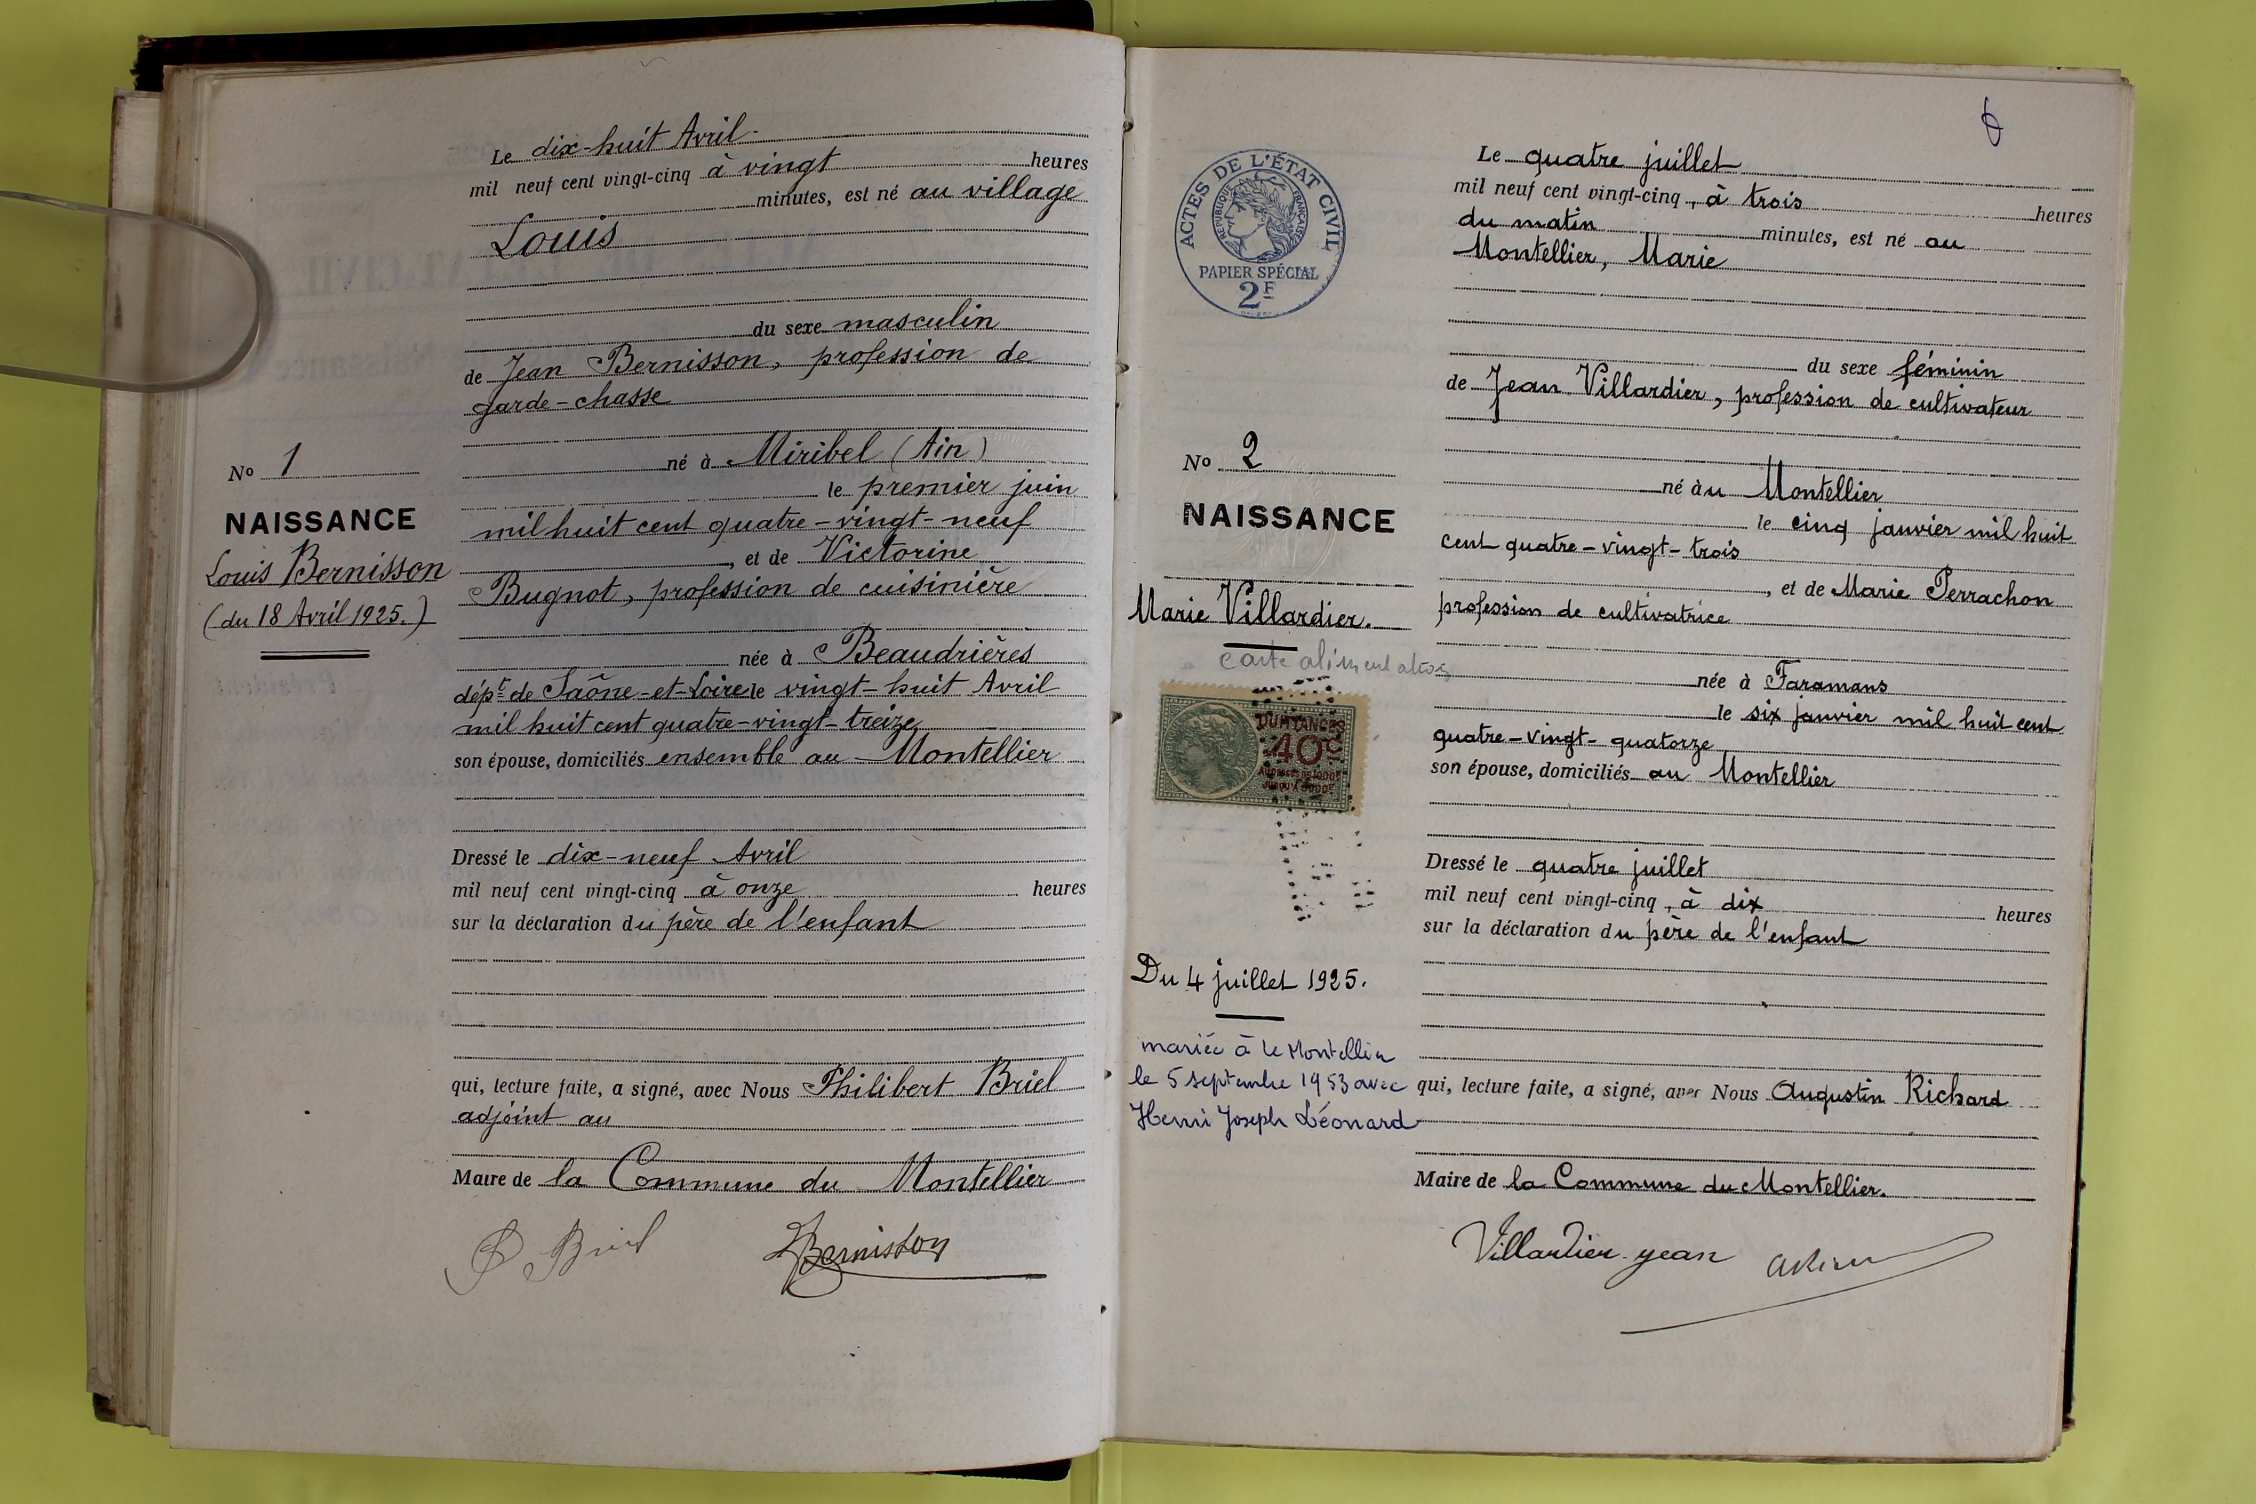 Le dix-huit Avril
mil neuf cent vingt-cinq à vingt heures
minutes, est né au village
Louis
du sexe masculin
de Jean Bernisson, profession de
garde-chasse
né à Miribel (Ain)
le premier juin
mil huit cent quatre-vingt-neuf
, et de Victorine
Bugnot, profession de cuisinière
née à Beaudrières
dépt de Saône-et-Loire le vingt-huit Avril
mil huit cent quatre-vingt-treize
son épouse, domiciliés ensemble au Montellier
Dressé le dix-neuf Avril
mil neuf cent vingt-cinq à onze heures
sur la déclaration du père de l'enfant
qui, lecture faite, a signé, avec Nous Philibert Briel
adjoint au
Maire de la Commune du Montellier
P Briel
Bernisson
No 1
NAISSANCE
Louis Bernisson
(du 18 Avril 1925.)
6
ACTES DE L'ÉTAT CIVIL
RÉPUBLIQUE FRANÇAISE
PAPIER SPÉCIAL
2F
No 2
NAISSANCE
Marie Villardier.
carte alimentation
QUITTANCES
40c
Du 4 juillet 1925.
mariée à Le Montellier
le 5 septembre 1953 avec
Henri Joseph Léonard
Le quatre juillet
mil neuf cent vingt-cinq, à trois heures
du matin minutes, est né au
Montellier, Marie
du sexe féminin
de Jean Villardier, profession de cultivateur
né au Montellier
le cinq janvier mil huit
cent quatre-vingt-trois
, et de Marie Perrachon
profession de cultivatrice
née à Faramans
le six janvier mil huit cent
quatre-vingt-quatorze
son épouse, domiciliés au Montellier
Dressé le quatre juillet
mil neuf cent vingt-cinq, à dix heures
sur la déclaration du père de l'enfant
qui, lecture faite, a signé, avec Nous Augustin Richard
Maire de la Commune du Montellier.
Villardier jean